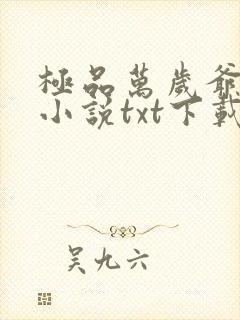 極品萬歲爺
小說txt下載
吴九六